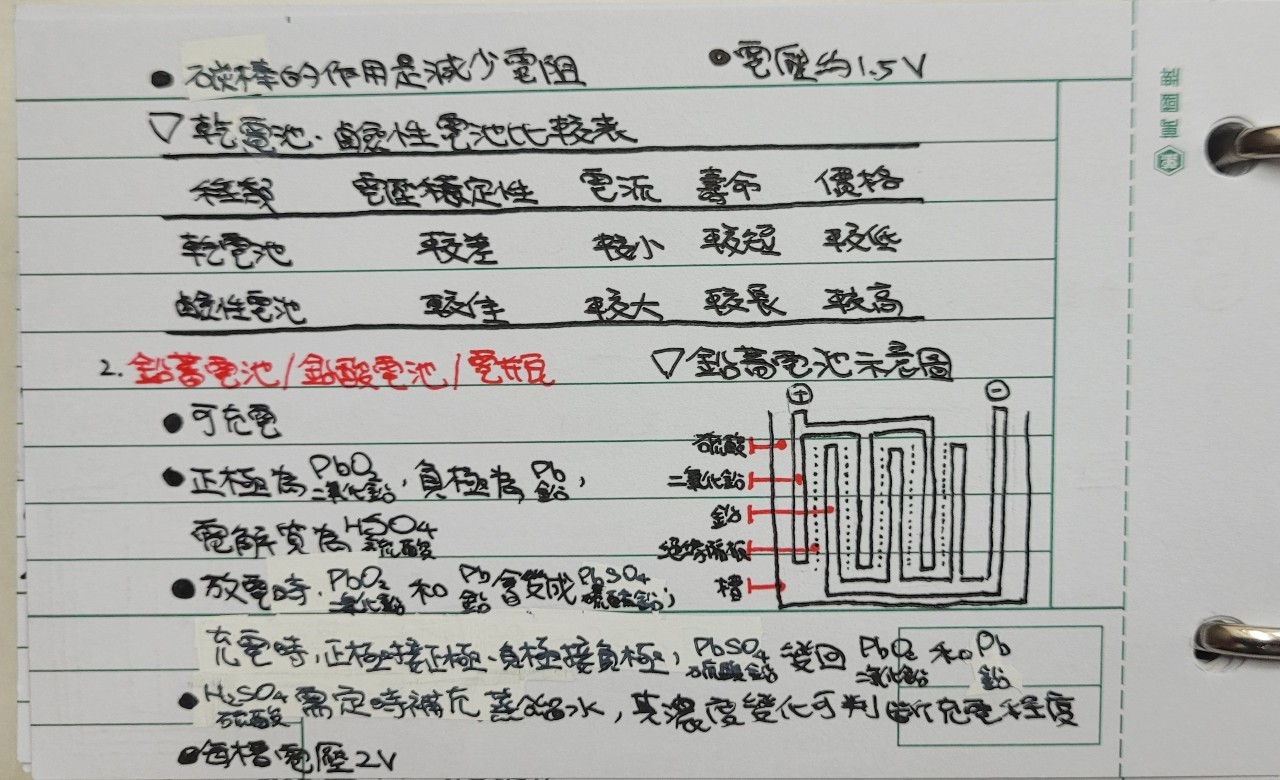 •碳棒的作用是減少電阻 •電壓約1.5V
▽乾電池、鹼性電池比較表
種類 電壓穩定性 電流 壽命 價格
乾電池 較差 較小 較短 較低
鹼性電池 較佳 較大 較長 較高
2. 鉛蓄電池/鉛酸電池/電瓶 ▽鉛蓄電池示意圖
•可充電
⊕ ⊖
硫酸
•正極為PbO₂二氧化鉛,負極為Pb鉛,
二氧化鉛
鉛
電解質為H₂SO₄硫酸
絕緣隔板
•放電時,PbO₂二氧化鉛和Pb鉛會變成PbSO₄硫酸鉛;
槽
充電時,正極接正極、負極接負極,PbSO₄硫酸鉛變回PbO₂二氧化鉛和Pb鉛
•H₂SO₄硫酸需定時補充蒸餾水,其濃度變化可判斷充電程度
•每槽電壓2V